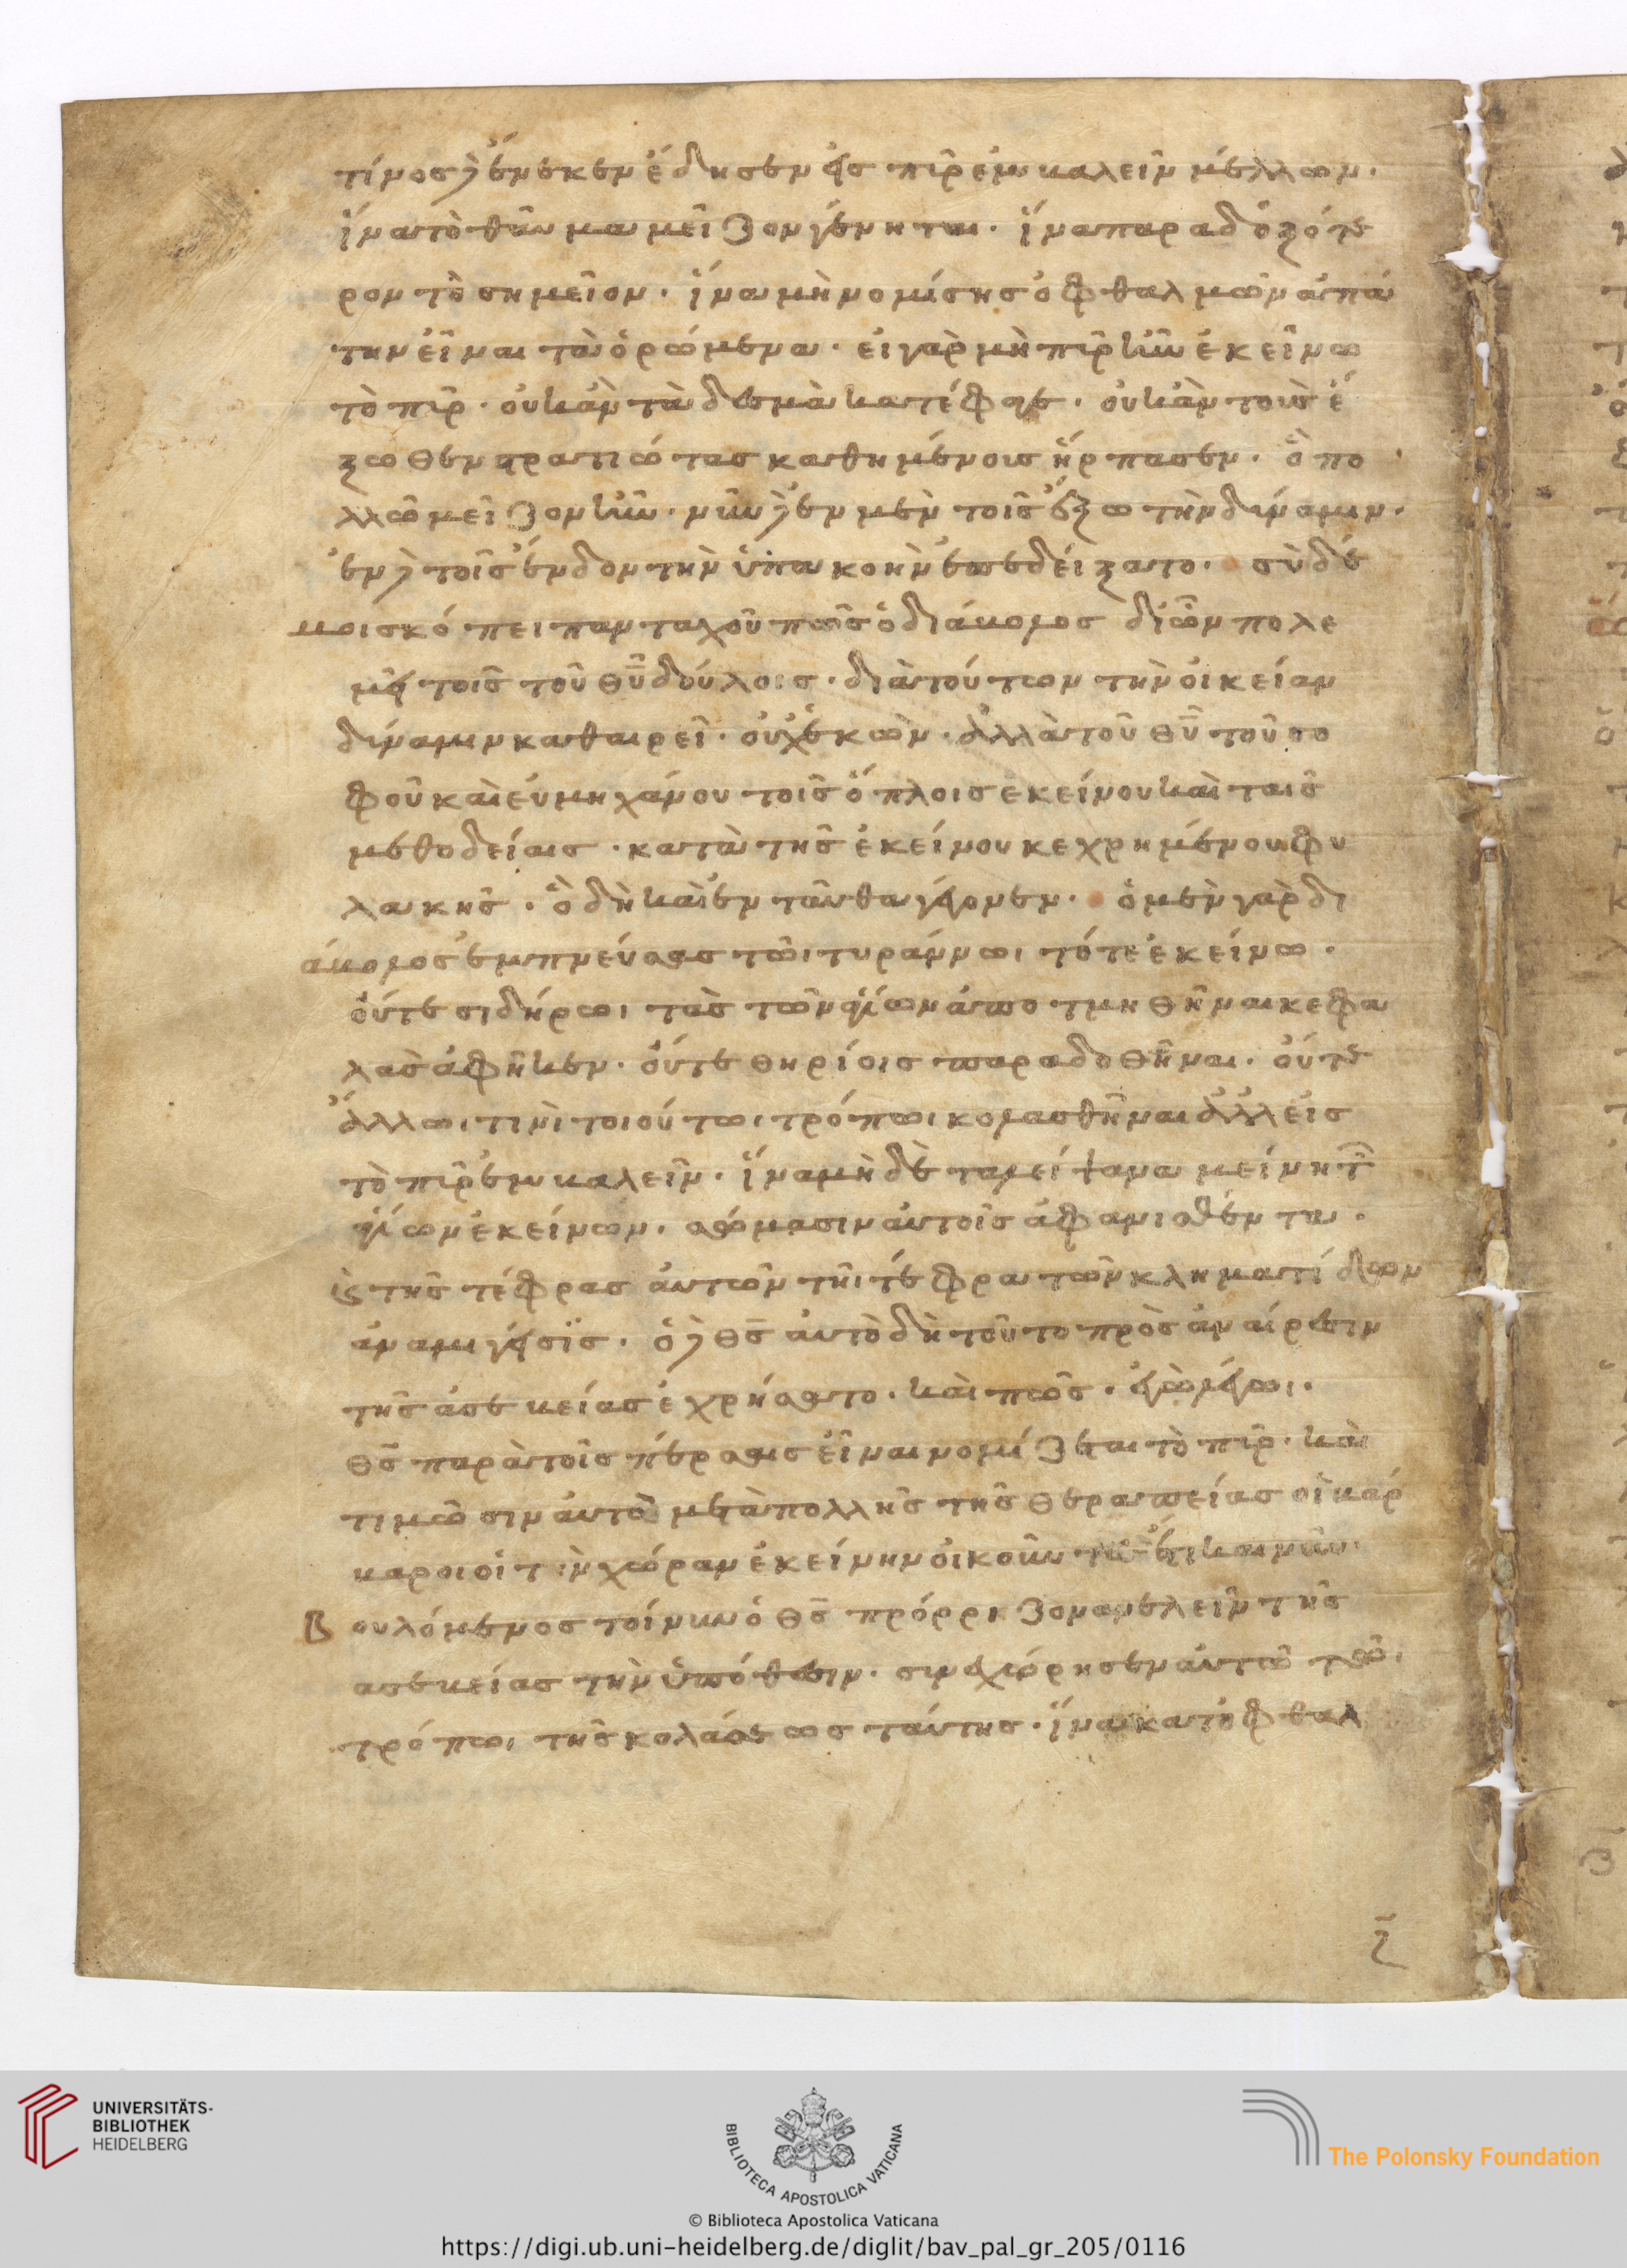 τίνος δ ἕνεκεν ἔδησεν εἰς πῦρ ἐμβαλεῖν μέλλων·
ἵνα τὸ θαῦμα μεῖζον γένηται· ἵνα παραδοξότε
ρον τὸ σημεῖον· ἵνα μὴ νομίσης ὀφθαλμῶν ἀπά
την εἶναι τὰ ὁρώμενα· εἰ γὰρ μὴ πῦρ ἦν ἐκεῖνο
τὸ πῦρ· οὐκ ἂν τὰ δεσμὰ κατέφαγε· οὐκ ἂν τοὺς ἔ
ξωθεν στρατιώτας καθημένους ἥρπασεν· ὃ πο
λλῶ μεῖζον ἦν· νῦν δ ἐν μὲν τοῖς ἔξω τὴν δύναμιν·
ἐν δ τοῖς ἔνδον τὴν ὑπακοὴν ἐπεδείξατο· σὺ δέ
μοι σκόπει πανταχοῦ πῶς ὁ διάβολος δι' ὧν πολε
μεῖ τοῖς τοῦ θυ δούλοις· διὰ τούτων τὴν οἰκείαν
δύναμιν καθαιρεῖ· οὐχ ἑκὼν· ἀλλὰ τοῦ θυ τοῦ σο
φοῦ καὶ εὐμηχάνου τοῖς ὅπλοις ἐκείνου καὶ ταῖς
μεθοδείαις· κατὰ τῆς ἐκείνου κεχρημένου φυ
λακῆς· ὃ δὴ καὶ ἐνταῦθα γέγονεν· ὁ μὲν γὰρ δι
άβολος ἐμπνεύσας τῶι τυράννωι τότε ἐκείνω·
οὔτε σιδήρωι τὰς τῶν ἁγίων ἀποτμηθῆναι κεφα
λὰς ἀφῆκεν· οὔτε θηρίοις παραδοθῆναι· οὔτε
ἄλλωι τινὶ τοιούτωι τρόπωι κολασθῆναι ἀλλ' εἰς
τὸ πῦρ ἐμβαλεῖν· ἵνα μὴ δὲ τὰ λείψανα μείνη τ
ἁγίων ἐκείνων· σώμασιν αὐτοῖς ἀφανισθέντα·
κ τῆς τέφρας αὐτῶν τῆι τέφρα τῶν κληματίδων
ἀναμιγείσης· ὁ δ θς αὐτὸ δὴ τοῦτο πρὸς ἀναίρεσιν
τῆς ἀσεβείας ἐχρήσατο· καὶ πῶς· ἐγὼ λέγω·
θς παρὰ τοῖς πέρσαις εἶναι νομίζεται τὸ πῦρ· καὶ
τιμῶσιν αὐτὸ μετὰ πολλῆς τῆς θεραπείας οἱ βάρ
βαροι οἱ τὴν χώραν ἐκείνην οἰκοῦντες ἔτι καὶ νῦν·
Βουλόμενος τοίνυν ὁ θς πρόρριζον ἀνελεῖν τῆς
ἀσεβείας τὴν ὑπόθεσιν· συνεχώρησεν αὐτῶ τῶ
τρόπωι τῆς κολάσεως ταύτης· ἵνα κατ' ὀφθαλ
UNIVERSITÄTS-
BIBLIOTHEK
HEIDELBERG
BIBLIOTECA APOSTOLICA VATICANA
The Polonsky Foundation
© Biblioteca Apostolica Vaticana
https://digi.ub.uni-heidelberg.de/diglit/bav_pal_gr_205/0116